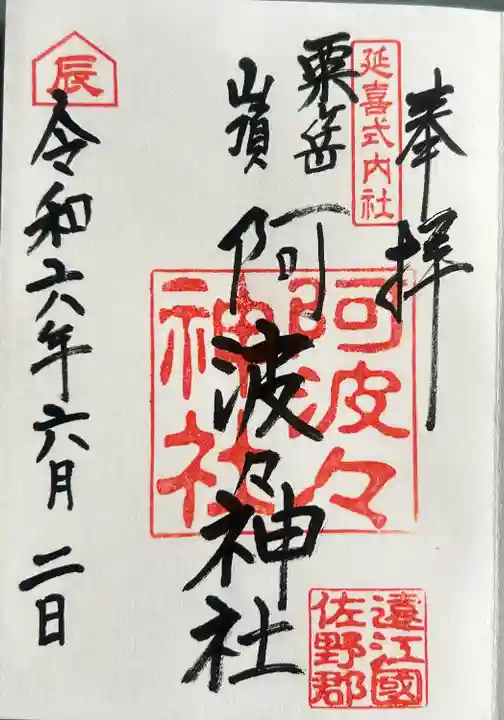 奉拝
延喜式内社
粟ヶ岳
山嶺
阿波々神社
阿波々
神社
遠江國
佐野郡
辰
令和六年六月二日